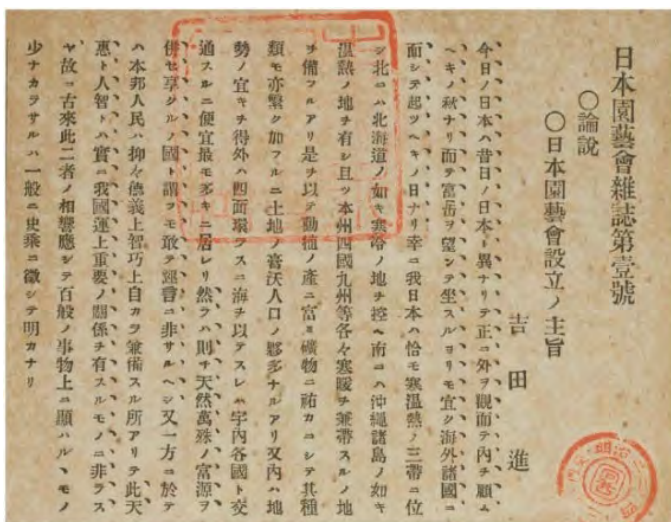 日本園藝會雜誌第壹號
〇論說
〇日本園藝會設立ノ主旨
吉田進
今日ノ日本ハ昔日ノ日本ト異ナリテ正ニ外ヲ觀而テ內チ顧ム
ヘキノ秋ナリ而テ富岳ヲ望ンテ坐スルヨリモ宜ク海外諸國ニ
面シテ起ツヘキノ日ナリ幸ニ我日本ハ恰モ寒溫熱ノ三帶ニ位
シ北ニハ北海道ノ如キ寒冷ノ地チ控ヘ南ニハ沖繩諸島ノ如キ
溫熱ノ地チ有シ且ツ本州四國九州等各々寒暖チ兼帶スルノ地
チ備フルアリ是チ以テ動植ノ產ニ富ミ礦物ニ祐カニシテ其種
類モ亦繁ク加フルニ土地ノ膏沃人口ノ夥多ナルアリ又內ハ地
勢ノ宜キチ得外ハ四面環ラスニ海チ以テスレハ宇內各國ト交
通スルニ便宜最モ多キニ居レリ然ラハ則チ天然萬殊ノ富源ヲ
併セ享クルノ國ト謂フモ敢テ誣言ニ非サルヘシ又一方ニ於テ
ハ本邦人民ハ抑々德義上智巧上自カラ兼備スル所アリテ此天
惠ト人智トハ實ニ我國運上重要ノ關係チ有スルモノニ非ラス
ヤ故ニ古來此二者ノ相響應シテ百般ノ事物上ニ顯ハルヽモノ
少ナカラサルハ一般ニ史乘ニ徵シテ明カナリ